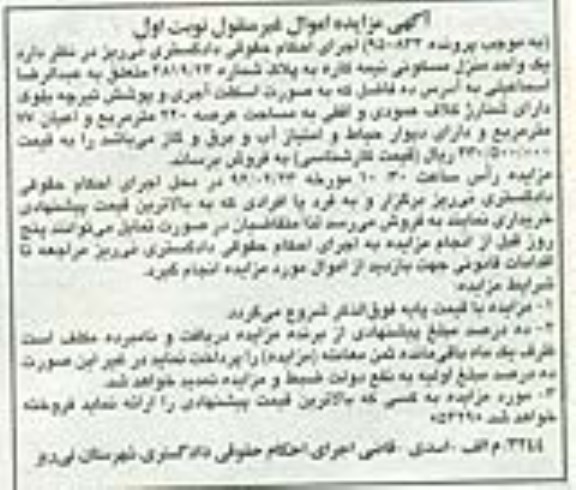 آگهی مزایده اموال غیرمنقول نوبت اول
(به موجب پرونده ۹۵۰۸۳۳) اجرای احکام حقوقی دادگستری نی‌ریز در نظر دارد
یک واحد منزل مسکونی نیمه کاره به پلاک شماره ۲۸۱۹/۲۳ متعلق به عبدالرضا
اسماعیلی به آدرس ده فاضل که به صورت اسکلت آجری و پوشش تیرچه بلوک
دارای شناژ کلاف عمودی و افقی به مساحت عرصه ۲۲۰ مترمربع و اعیان ۷۷
مترمربع و دارای دیوار حیاط و امتیاز آب و برق و گاز می‌باشد را به قیمت
۲۳۰/۵۰۰/۰۰۰ ریال (قیمت کارشناسی) به فروش برساند.
مزایده رأس ساعت ۱۰:۳۰ مورخه در محل اجرای احکام حقوقی
دادگستری نی‌ریز برگزار و به فرد یا افرادی که به بالاترین قیمت پیشنهادی
خریداری نمایند به فروش می‌رسد لذا متقاضیان در صورت تمایل می‌توانند پنج
روز قبل از انجام مزایده به اجرای احکام حقوقی دادگستری نی‌ریز مراجعه تا
اقدامات قانونی جهت بازدید از اموال مورد مزایده انجام گیرد.
شرایط مزایده:
۱- مزایده با قیمت پایه فوق‌الذکر شروع می‌گردد.
۲- ده درصد مبلغ پیشنهادی از برنده مزایده دریافت و نامبرده مکلف است
ظرف یک ماه باقی‌مانده ثمن معامله (مزایده) را پرداخت نماید در غیر این صورت
ده درصد مبلغ اولیه به نفع دولت ضبط و مزایده تجدید خواهد شد.
۳- مورد مزایده به کسی که بالاترین قیمت پیشنهادی را ارائه نماید فروخته
خواهد شد.
۳۲۴۴/ م الف - اسدی - قاضی اجرای احکام حقوقی دادگستری شهرستان نی‌ریز